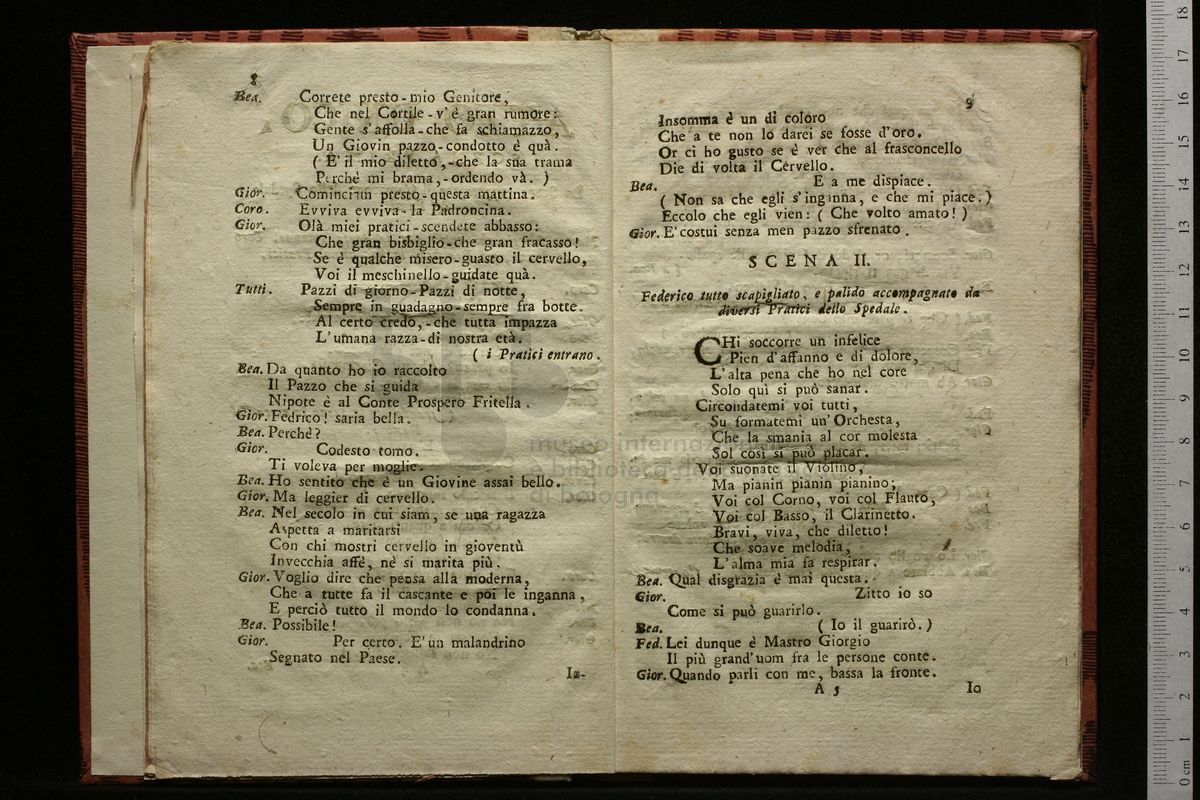 8
Bea. Correte presto - mio Genitore,
Che nel Cortile - v'è gran rumore:
Gente s'affolla - che fa schiamazzo,
Un Giovin pazzo - condotto è quà.
( E' il mio diletto, - che la sua trama
Perchè mi brama, - ordendo và. )
Gior. Cominciam presto - questa mattina.
Coro. Evviva evviva - la Padroncina.
Gior. Olà miei pratici - scendete abbasso:
Che gran bisbiglio - che gran fracasso!
Se è qualche misero - guasto il cervello,
Voi il meschinello - guidate quà.
Tutti. Pazzi di giorno - Pazzi di notte,
Sempre in guadagno - sempre fra botte.
Al certo credo, - che tutta impazza
L'umana razza - di nostra età.
( i Pratici entrano.
Bea. Da quanto ho io raccolto
Il Pazzo che si guida
Nipote è al Conte Prospero Fritella.
Gior. Fedrico! saria bella.
Bea. Perchè?
Gior. Codesto tomo.
Ti voleva per moglie.
Bea. Ho sentito che è un Giovine assai bello.
Gior. Ma leggier di cervello.
Bea. Nel secolo in cui siam, se una ragazza
Aspetta a maritarsi
Con chi mostri cervello in gioventù
Invecchia affè, nè si marita più.
Gior. Voglio dire che pensa alla moderna,
Che a tutte fa il cascante e poi le inganna,
E perciò tutto il mondo lo condanna.
Bea. Possibile!
Gior. Per certo. E' un malandrino
Segnato nel Paese.
In-
9
Insomma è un di coloro
Che a te non lo darei se fosse d'oro.
Or ci ho gusto se è ver che al frasconcello
Die di volta il Cervello.
Bea. E a me dispiace.
( Non sa che egli s'inganna, e che mi piace. )
Eccolo che egli vien: ( Che volto amato! )
Gior. E' costui senza men pazzo sfrenato.
SCENA II.
Federico tutto scapigliato, e palido accompagnato da
diversi Pratici dello Spedale.
CHi soccorre un infelice
Pien d'affanno e di dolore,
L'alta pena che ho nel core
Solo quì si può sanar.
Circondatemi voi tutti,
Su formatemi un'Orchesta,
Che la smania al cor molesta
Sol così si può placar.
Voi suonate il Violino,
Ma pianin pianin pianino;
Voi col Corno, voi col Flauto,
Voi col Basso, il Clarinetto.
Bravi, viva, che diletto!
Che soave melodia,
L'alma mia fa respirar.
Bea. Qual disgrazia è mai questa.
Gior. Zitto io so
Come si può guarirlo.
Bea. ( Io il guarirò. )
Fed. Lei dunque è Mastro Giorgio
Il più grand'uom fra le persone conte.
Gior. Quando parli con me, bassa la fronte.
A 5 Io
museo internaz
e biblioteca d
di bologna
0 cm 1 2 3 4 5 6 7 8 9 10 11 12 13 14 15 16 17 18